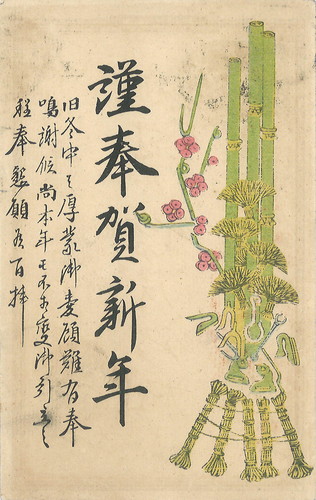 謹奉賀新年
旧冬中ハ厚蒙御愛顧難有奉
鳴謝候尚本年モ不相変御引立之
程奉懇願候百拝